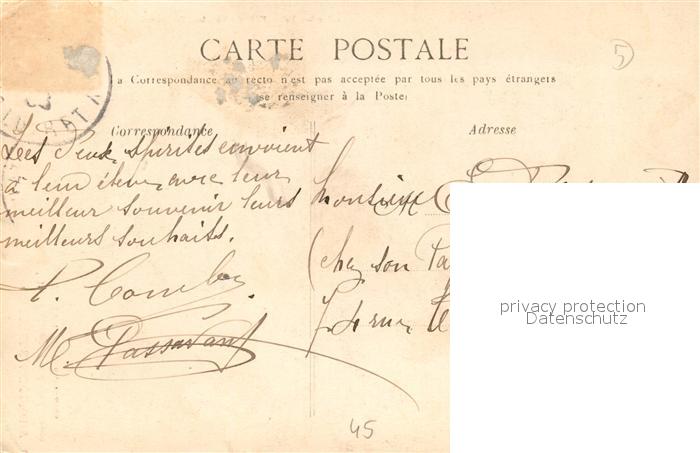 5
CARTE POSTALE
a Correspondance au recto n'est pas acceptée par tous les pays étrangers
se renseigner à la Poste
Correspondance
Adresse
Les deux spirites envoient
à leur élève, avec leur
meilleur souvenir leurs
meilleurs souhaits.
P. Combe
M. Passavant
Monsieur
(chez son Pa
rue
privacy protection
Datenschutz
45